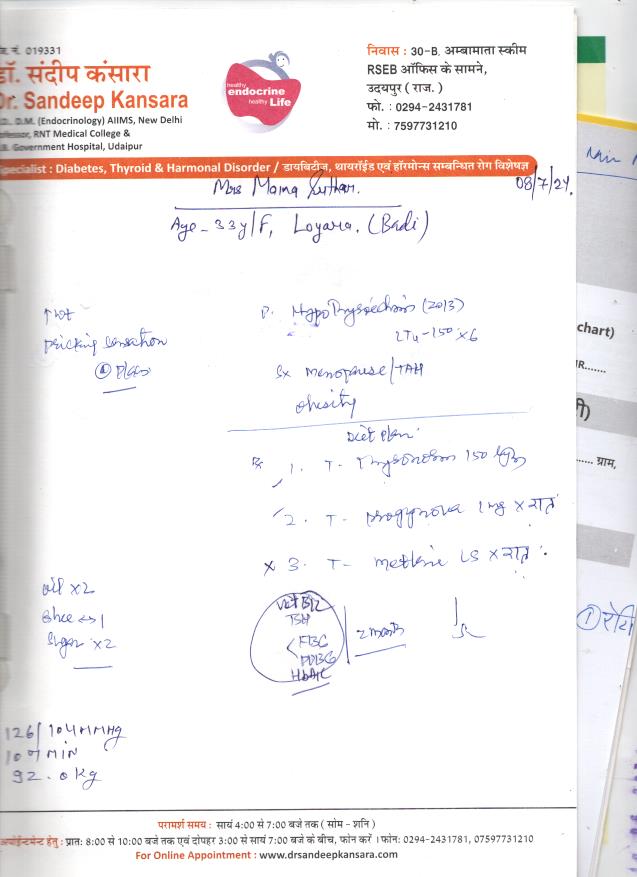 जि. नं. 019331
डॉ. संदीप कंसारा
Dr. Sandeep Kansara
D.M. (Endocrinology) AIIMS, New Delhi
Professor, RNT Medical College &
Government Hospital, Udaipur
healthy
endocrine
healthy Life
निवास : 30-B. अम्बामाता स्कीम
RSEB ऑफिस के सामने,
उदयपुर ( राज. )
फो. : 0294-2431781
मो. : 7597731210
Specialist : Diabetes, Thyroid & Harmonal Disorder / डायबिटीज, थायरॉईड एवं हॉरमोन्स सम्बन्धित रोग विशेषज्ञ
Mrs Mama Suthar.
08/7/24.
Age - 33y/F, Loyara. (Badi)
↑ wt
pricking sensation
Hypothyroidism (2013)
LT4 - 150 x6
Sx Menopause/TAH
Obesity
Diet Plan
Rx 1. T- Thyronorm 150
2. T- Progynova 1mg x रात
x 3. T- x रात
oil x2
Ghee 1
Sugar x2
Vit B12
TSH
FBG
PPBG
HbA1C
2 month
126/104 MMHg
107 MIN
92.0 kg
chart)
IR.......
...... ग्राम,
① रोटी
परामर्श समय : सायं 4:00 से 7:00 बजे तक ( सोम - शनि )
अपोईन्टमेन्ट हेतु : प्रात: 8:00 से 10:00 बजे तक एवं दोपहर 3:00 से सायं 7:00 बजे के बीच, फोन करें । फोन: 0294-2431781, 07597731210
For Online Appointment : www.drsandeepkansara.com